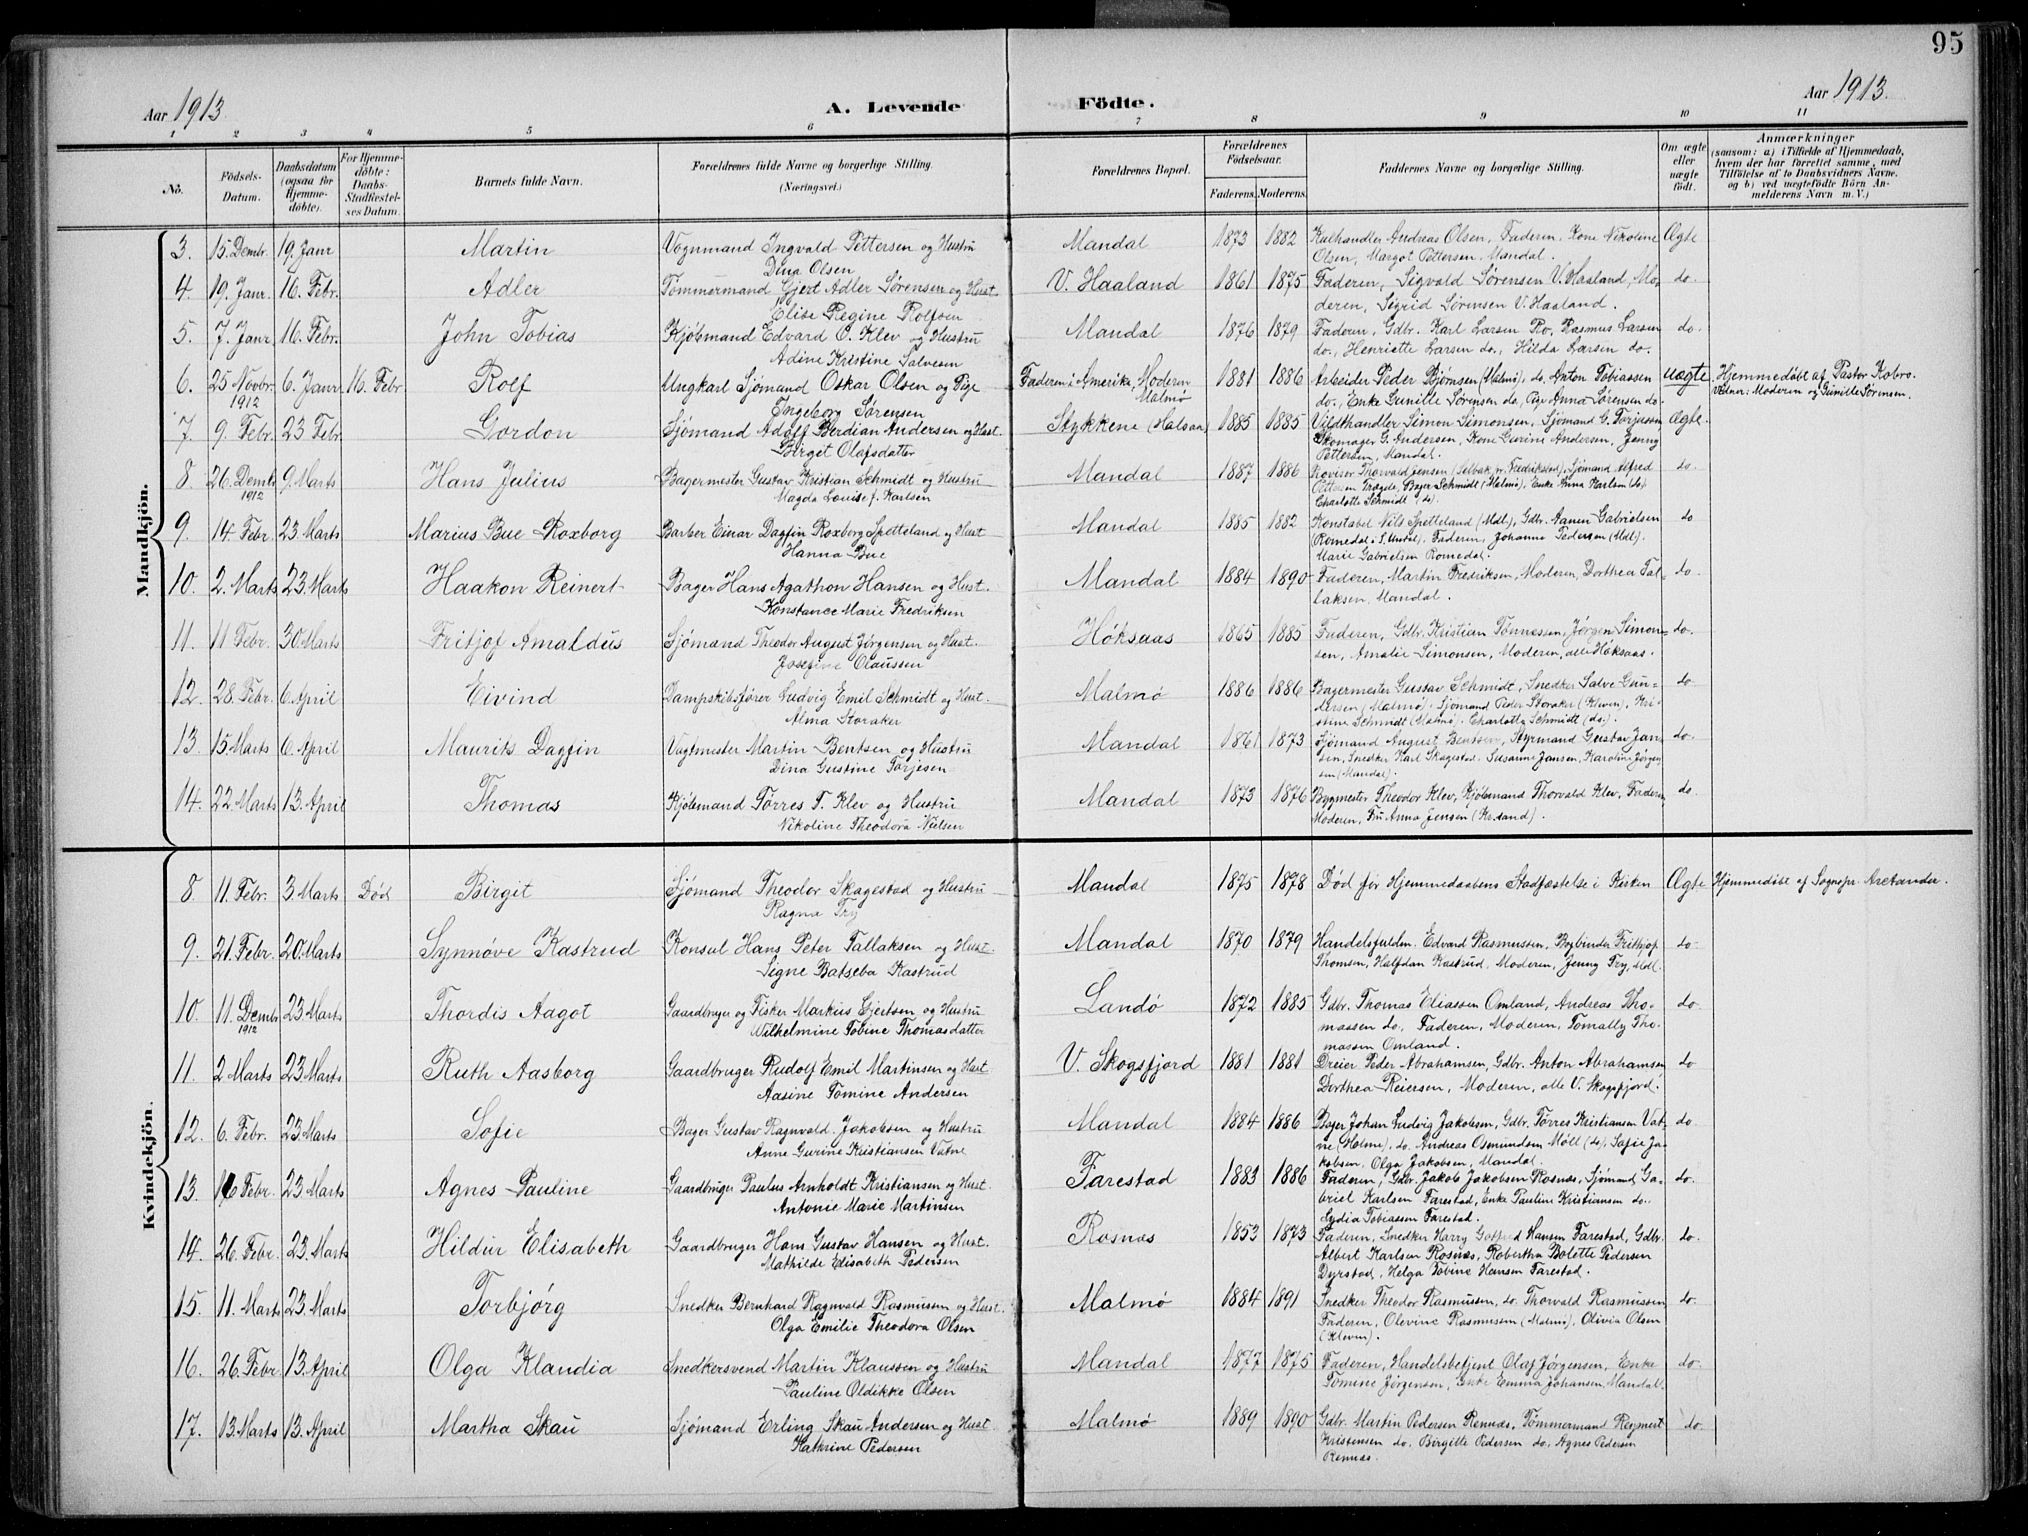 95
Aar 1913.
A. Levende
Födte.
Aar 1913.
1 2 3 4 5 6 7 8 9 10 11
No.
Födsels-
Datum.
Daabsdatum
(ogsaa for
Hjemme-
döbte).
For Hjemme-
döbte:
Daabs-
Stadfæstel-
ses Datum.
Barnets fulde Navn.
Forældrenes fulde Navne og borgerlige Stilling.
(Næringsvei.)
Forældrenes Bopæl.
Forældrenes
Födselsaar.
Faderens. Moderens.
Faddernes Navne og borgerlige Stilling.
Om ægte
eller
uægte
født.
Anmærkninger
(saasom: a) i Tilfælde af Hjemmedaab,
hvem der har forrettet samme, med
Tilföielse af to Daabsvidners Navne,
og b) ved uægtefödte Börn An-
melderens Navn m. V.)
Mandkjön.
3. 15. Dembr. 19. Janr Martin Vognmand Ingvald Pettersen og Hustru Mandal 1873 1882 Kulhandler Andreas Olsen, Faderen, Kone Nikoline Ægte
Dina Olsen Olsen, Margot Pettersen, Mandal.
4. 19. Janr. 16. Febr. Adler Tømmermand Gjert Adler Sørensen og Hust. V. Haaland 1861 1875 Faderen, Sigvald Sørensen V. Haaland, Mo- do.
Elise Regine Rolfsen deren, Sigrid Sørensen V. Haaland.
5. 7. Janr 16. Febr. John Tobias Kjøbmand Edvard O. Klev og Hustru Mandal 1876 1879 Faderen, Gdbr. Karl Larsen Ro, Rasmus Larsen do.
Adine Kristine Salvesen do., Henriette Larsen do., Hilda Larsen do.
6. 25 Novbr. 6. Janr 16. Febr Rolf Ungkarl Sjømand Oskar Olsen og Pige Faderen i Amerika, Moderen 1881 1886 Arbeider Peder Bjørnsen (Malmø), do. Anton Tobiassen uægte Hjemmedøbt af Pastor Kobro.
1912 Ingeborg Sørensen Malmø do., Enke Gunille Sørensen do., Pige Anna Sørensen do. Vidner: Moderen og Gunille Sørensen.
7. 9. Febr. 23 Febr. Gordon Sjømand Adolf Berdian Andersen og Hust. Stykkene (Halsaa) 1885 1885 Vildthandler Simon Simonsen, Sjømand G. Torjussen Ægte.
Birget Olafsdatter Skomager G. Andersen, Kone Gurine Andersen, Jenny
Pettersen, Mandal.
8. 26. Dembr. 9. Marts Hans Julius Bagermester Gustav Kristian Schmidt og Hustru Mandal 1887 1886 Thorvald Jensen (Selbak pr. Fredrikstad), Sjømand Alfred do.
1912 Magda Louise f. Karlsen Pettersen Bager Schmidt (Malmø), Enke Anna Karlsen (do),
Charlotte Schmidt (do).
9. 14. Febr. 23. Marts Marius Bue Roxborg Barber Einar Dagfin Roxborg Spetteland og Hust Mandal 1885 1882 Konstabel Nils Spetteland (Mdl), Gdbr. Aanen Gabrielsen do
Hanna Bue (Romedal i S. Undal). Faderen, Johanne Pedersen (Mdl).
Marie Gabrielsen Romedal.
10. 2. Marts 23. Marts Haakon Reinert Bager Hans Agathon Hansen og Hust. Mandal 1884 1890 Faderen, Martin Fredriksen, Moderen, Dorthea Tal- do.
Konstance Marie Fredriksen laksen, Mandal.
11. 11. Febr. 30. Marts Fritjof Arnaldus Sjømand Theodor August Jørgensen og Hust. Høksaas 1865 1885 Faderen, Gdbr. Kristian Tønnessen, Jørgen Simon- do.
Josefine Olaussen sen, Amalie Simonsen, Moderen, alle Høksaas.
12. 28. Febr. 6. April Eivind Dampskibsfører Ludvig Emil Schmidt og Hust. Malmø 1886 1886 Bagermester Gustav Schmidt, Snedker Salve Gun- do
Alma Storaker dersen (Malmø). Sjømand Peder Storaker (Kleven), Kri-
stine Schmidt (Malmø). Charlotte Schmidt (do).
13. 15. Marts 6. April Maurits Dagfin Vagtmester Martin Bentsen og Hustru Mandal 1861 1873 Sjømand August Bentsen, Styrmand Gustav Jan- do.
Dina Gustine Torjesen sen, Snedker Karl Skagestad. Susanne Jansen, Karoline Jørgen-
sen (Mandal).
14. 22. Marts 13. April Thomas Kjøbmand Tørres T. Klev og Hustru Mandal 1873 1876 Bygmester Theodor Klev, Kjøbmand Thorvald Klev, Faderen do.
Nikoline Theodora Nielsen Moderen, Fru Anna Jensen (Kr.sand).
Kvindekjön.
8. 11. Febr. 3. Marts Død Birgit Sjømand Theodor Skagestad og Hustru Mandal 1875 1878 Død før Hjemmedaabens Stadfæstelse i Kirken Ægte Hjemmedøbt af Sognepr. Arctander.
Ragna Try
9. 21. Febr. 20. Marts Synnøve Kastrud Konsul Hans Peter Tallaksen og Hust. Mandal 1870 1879 Handelsfuldm. Edvard Rasmussen, Bogbinder Frithjof do.
Signe Batseba Kastrud Thomsen, Halfdan Kastrud, Moderen, Jenny Try, Mdl.
10. 11. Dembr. 23. Marts Thordis Aagot Gaardbruger og Fisker Markus Gjertsen og Hustru Landø 1872 1885 Gdbr. Thomas Eliassen Omland, Andreas Tho- do.
1912 Wilhelmine Tobine Thomasdatter massen do, Faderen, Moderen, Tomally Tho-
massen Omland.
11. 2 Marts 23. Marts Ruth Aasborg Gaardbruger Rudolf Emil Martinsen og Hust V. Skogsfjord 1881 1881 Dreier Peder Abrahamsen, Gdbr. Anton Abrahamsen do
Aasine Tomine Andersen Dorthea Reiersen, Moderen, alle V. Skogsfjord.
12. 6. Febr. 23. Marts Sofie Bager Gustav Ragnvald Jakobsen og Hustru Mandal 1884 1886 Bager Johan Ludvig Jakobsen, Gdbr. Tørres Kristiansen Vat- do.
Anne Gurine Kristiansen Vatne ne (Holme). do. Andreas Osmundsen Møll (do), Sofie Ja-
kobsen, Olga Jakobsen, Mandal.
13. 16 Febr. 23. Marts Agnes Pauline Gaardbruger Paulus Arnholdt Kristiansen og Hust. Farestad 1883 1886 Faderen, Gdbr. Jakob Jakobsen Rosnæs, Sjømand Ga- do.
Antonie Marie Martinsen briel Karlsen Farestad, Enke Pauline Kristiansen do.
Lydia Tobiassen Farestad.
14. 26. Febr. 23. Marts Hildur Elisabeth Gaardbruger Hans Gustav Hansen og Hust. Rosnæs 1853 1873 Faderen, Snedker Harry Gotfred Hansen Farestad, Gdbr. do.
Mathilde Elisabeth Pedersen Albert Karlsen Rosnæs, Robertha Bolette Pedersen
Dyrstad, Helga Tobine Hansen Farestad.
15. 11. Marts 23. Marts Torbjørg Snedker Bernhard Ragnvald Rasmussen og Hust. Malmø 1884 1891 Snedker Theodor Rasmussen, do. Thorvald Rasmussen do.
Olga Emilie Theodora Olsen Faderen, Olevine Rasmussen (Malmø), Olivia Olsen
(Kleven).
16. 26. Febr 13. April Olga Klandia Snedkersvend Martin Klaussen og Hustru Mandal 1877 1875 Faderen, Handelsbetjent Olaf Jørgensen, Enke do.
Pauline Oldikke Olsen Tomine Jørgensen, Enke Emma Johansen, Mandal.
17. 13. Marts 13. April Martha Skau Sjømand Erling Skau Andersen og Hust. Malmø 1889 1890 Gdbr. Martin Pedersen Rennæs, Tømmermand Regnert do.
Kathrine Pedersen Kristensen do. Birgitte Pedersen do. Agnes Pedersen
Rennæs.